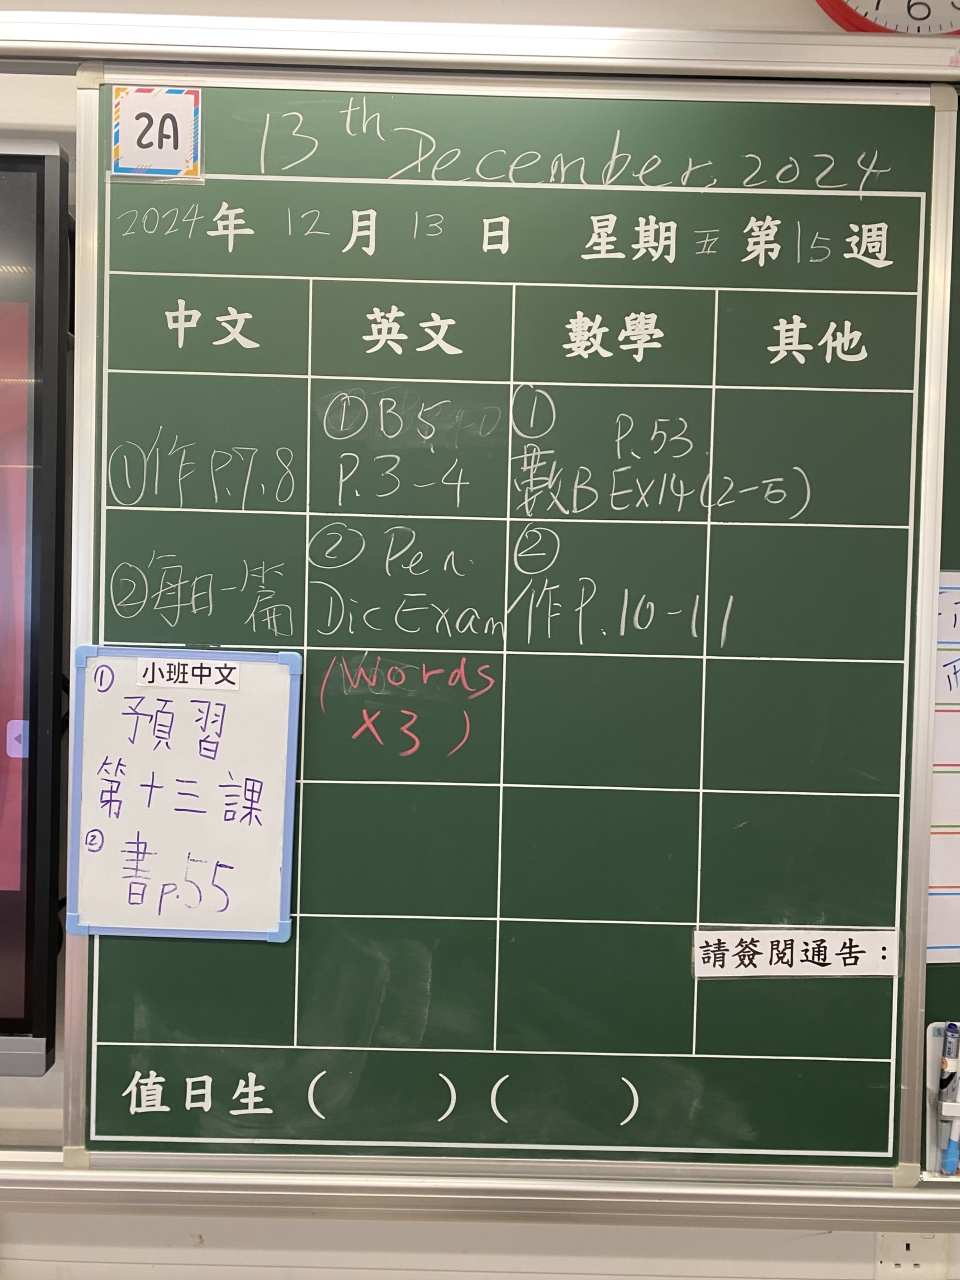 2A
13th December, 2024
2024年 12月 13日 星期五 第15週
中文 英文 數學 其他
①作P.7.8
①B5
P.3-4
①
P.53
數B EX14(2-5)
②每日一篇
②Pen
Dic Exam
(Words
×3)
②
作P.10-11
小班中文
①
預習
第十三課
②
書p.55
請簽閱通告：
值日生（ ）（ ）
6